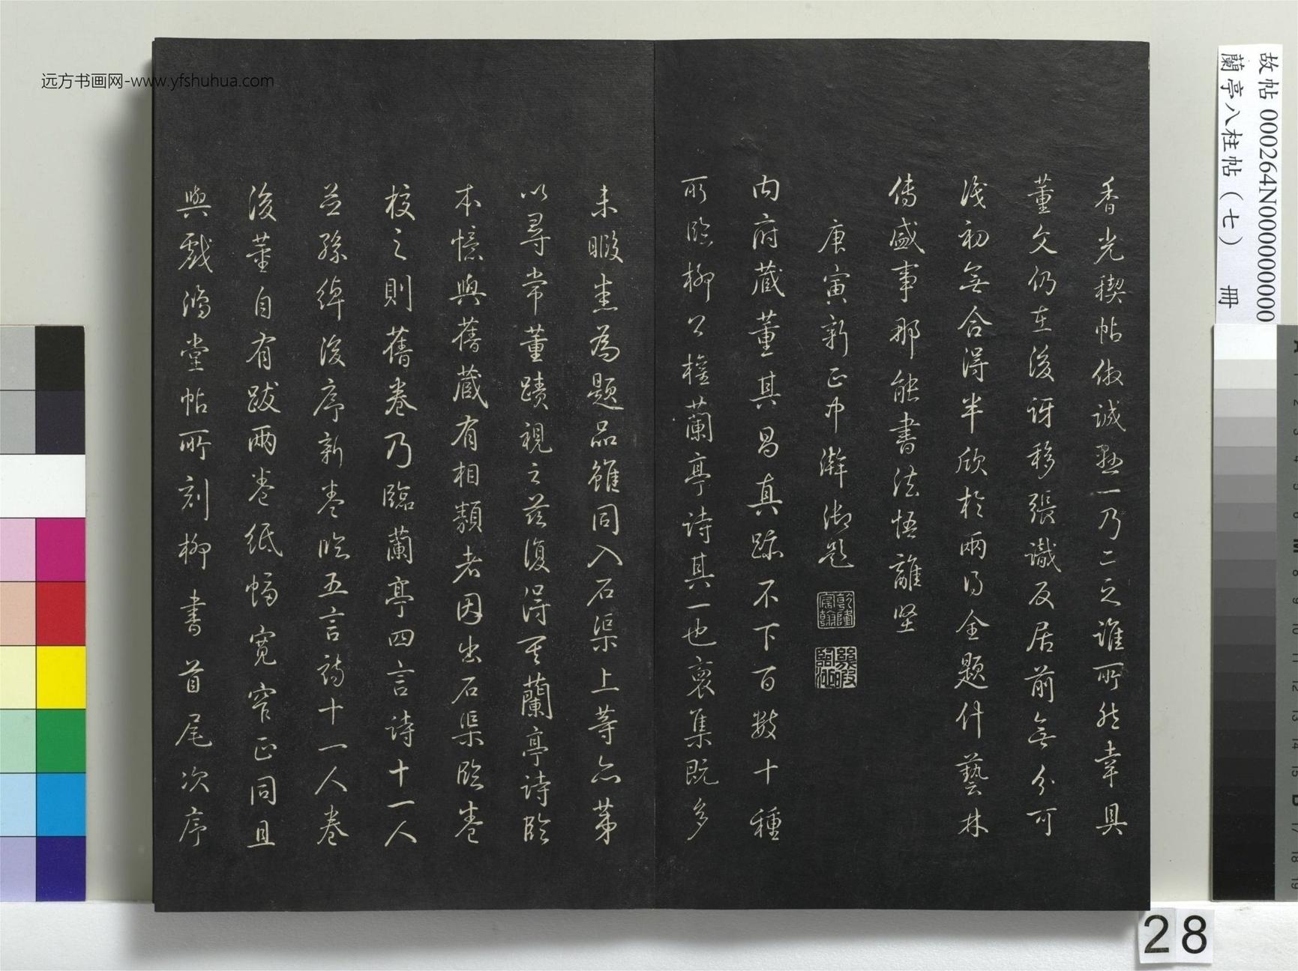 香光禊帖傲誠懸一乃二之誰所然幸具
董文仍在後訝移張識反居前無分可
淺初無合得半欣於兩得全題什藝林
傳盛事那能書法悟離堅
庚寅新正中澣御題
乾隆宸翰
内府藏董其昌真跡不下百數十種
所臨柳公權蘭亭詩其一也裒集既多
未暇悉為題品雖同入石渠上等亦第
以尋常董蹟視之茲復得其蘭亭詩臨
本憶與舊藏有相類者因出石渠臨卷
校之則舊卷乃臨蘭亭四言詩十一人
並孫綽後序新卷臨五言詩十一人卷
後董自有跋兩卷紙幅寬窄正同且
與戲鴻堂帖所刻柳書首尾次序
远方书画网-www.yfshuhua.com
故帖 000264N000000000
蘭亭八柱帖（七） 冊
28